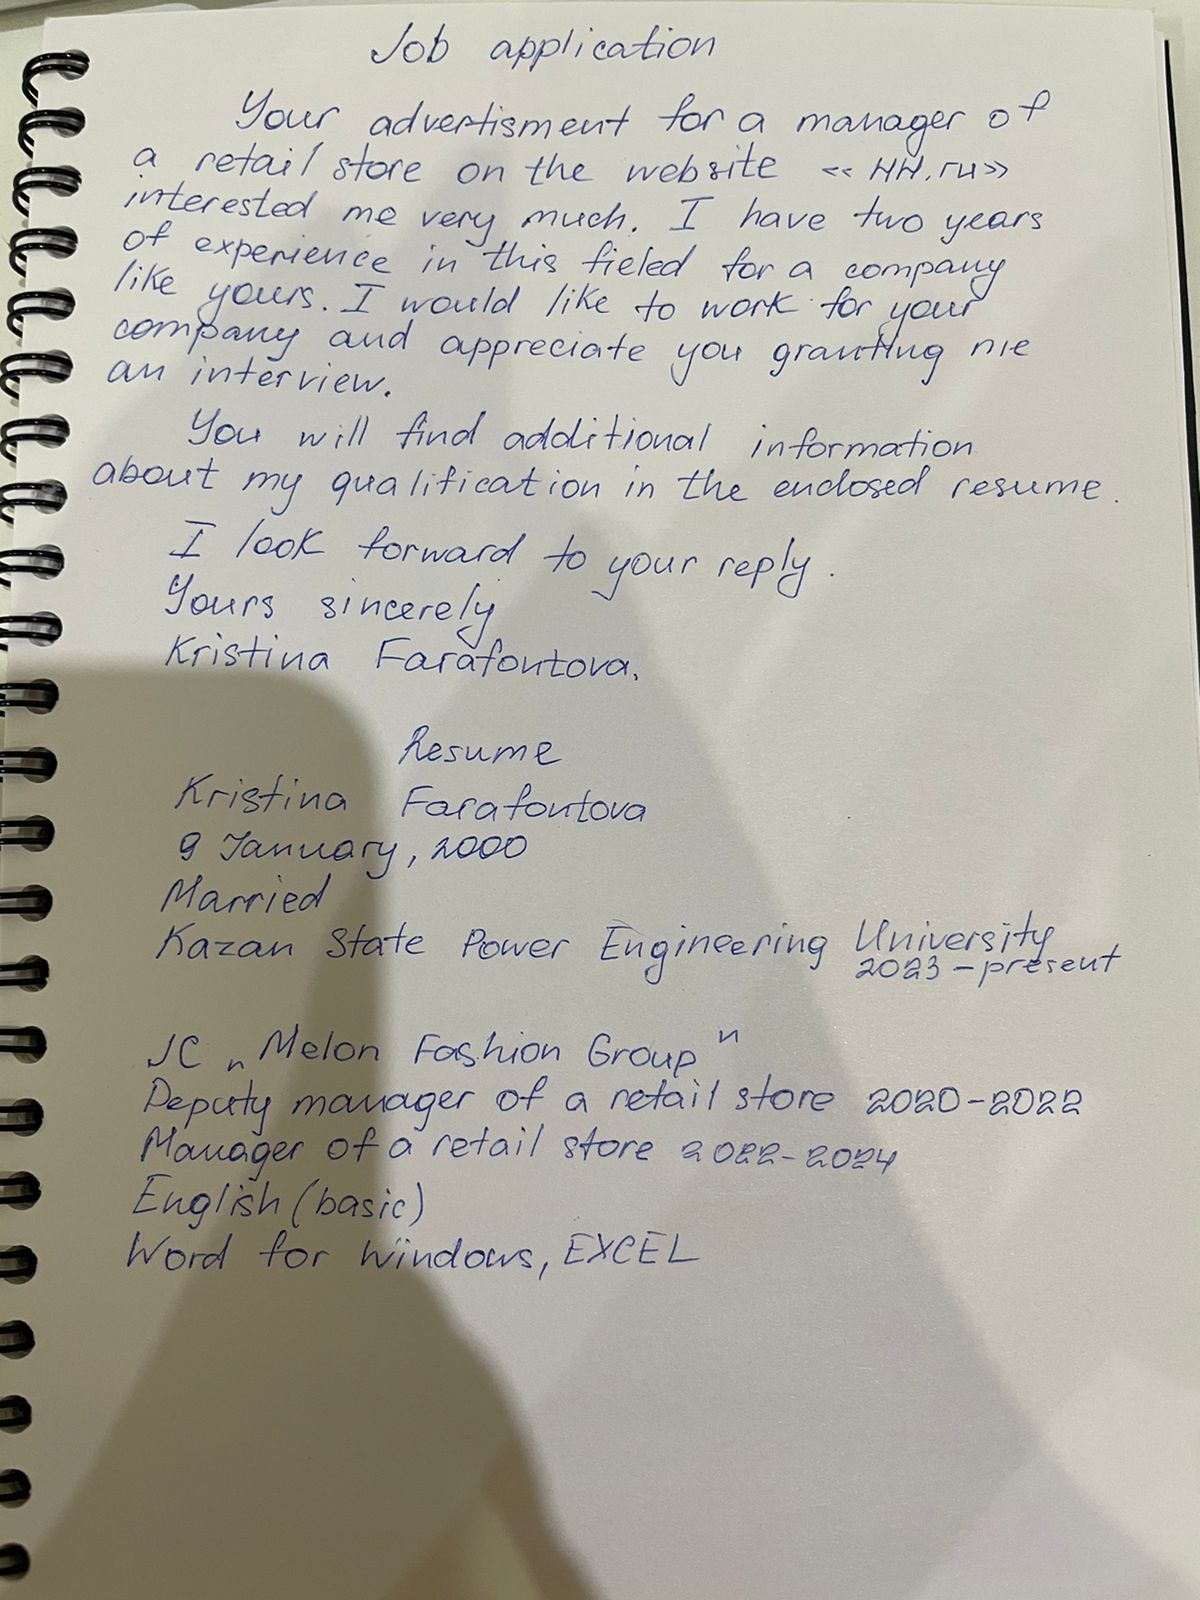 Job application
Your advertisment for a manager of
a retail store on the website << HH.ru>>
interested me very much. I have two years
of experience in this fieled for a company
like yours. I would like to work for your
company and appreciate you granting me
an interview.
You will find additional information
about my qualification in the enclosed resume.
I look forward to your reply.
Yours sincerely
Kristina Farafontova.
Resume
Kristina Farafontova
9 January, 2000
Married
Kazan State Power Engineering University
2023 - present
JC „Melon Fashion Group"
Deputy manager of a retail store 2020-2022
Manager of a retail store 2022-2024
English (basic)
Word for Windows, EXCEL